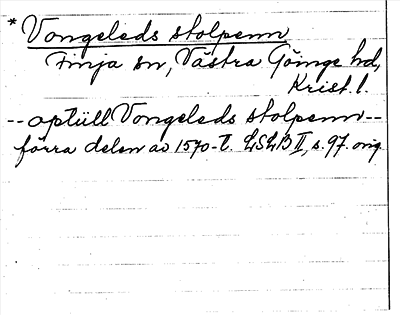 * Vongeleds stolpenn
Finja sn, Västra Göinge hd,
Krist. l.
-- optill Vongeleds stolpenn --
förra delen av 1570-t. LSLB II, s. 97. orig.